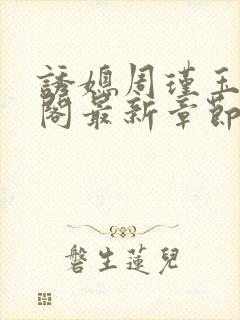 誘媳周瑾玉
閣最新章節
磐生蓮兒